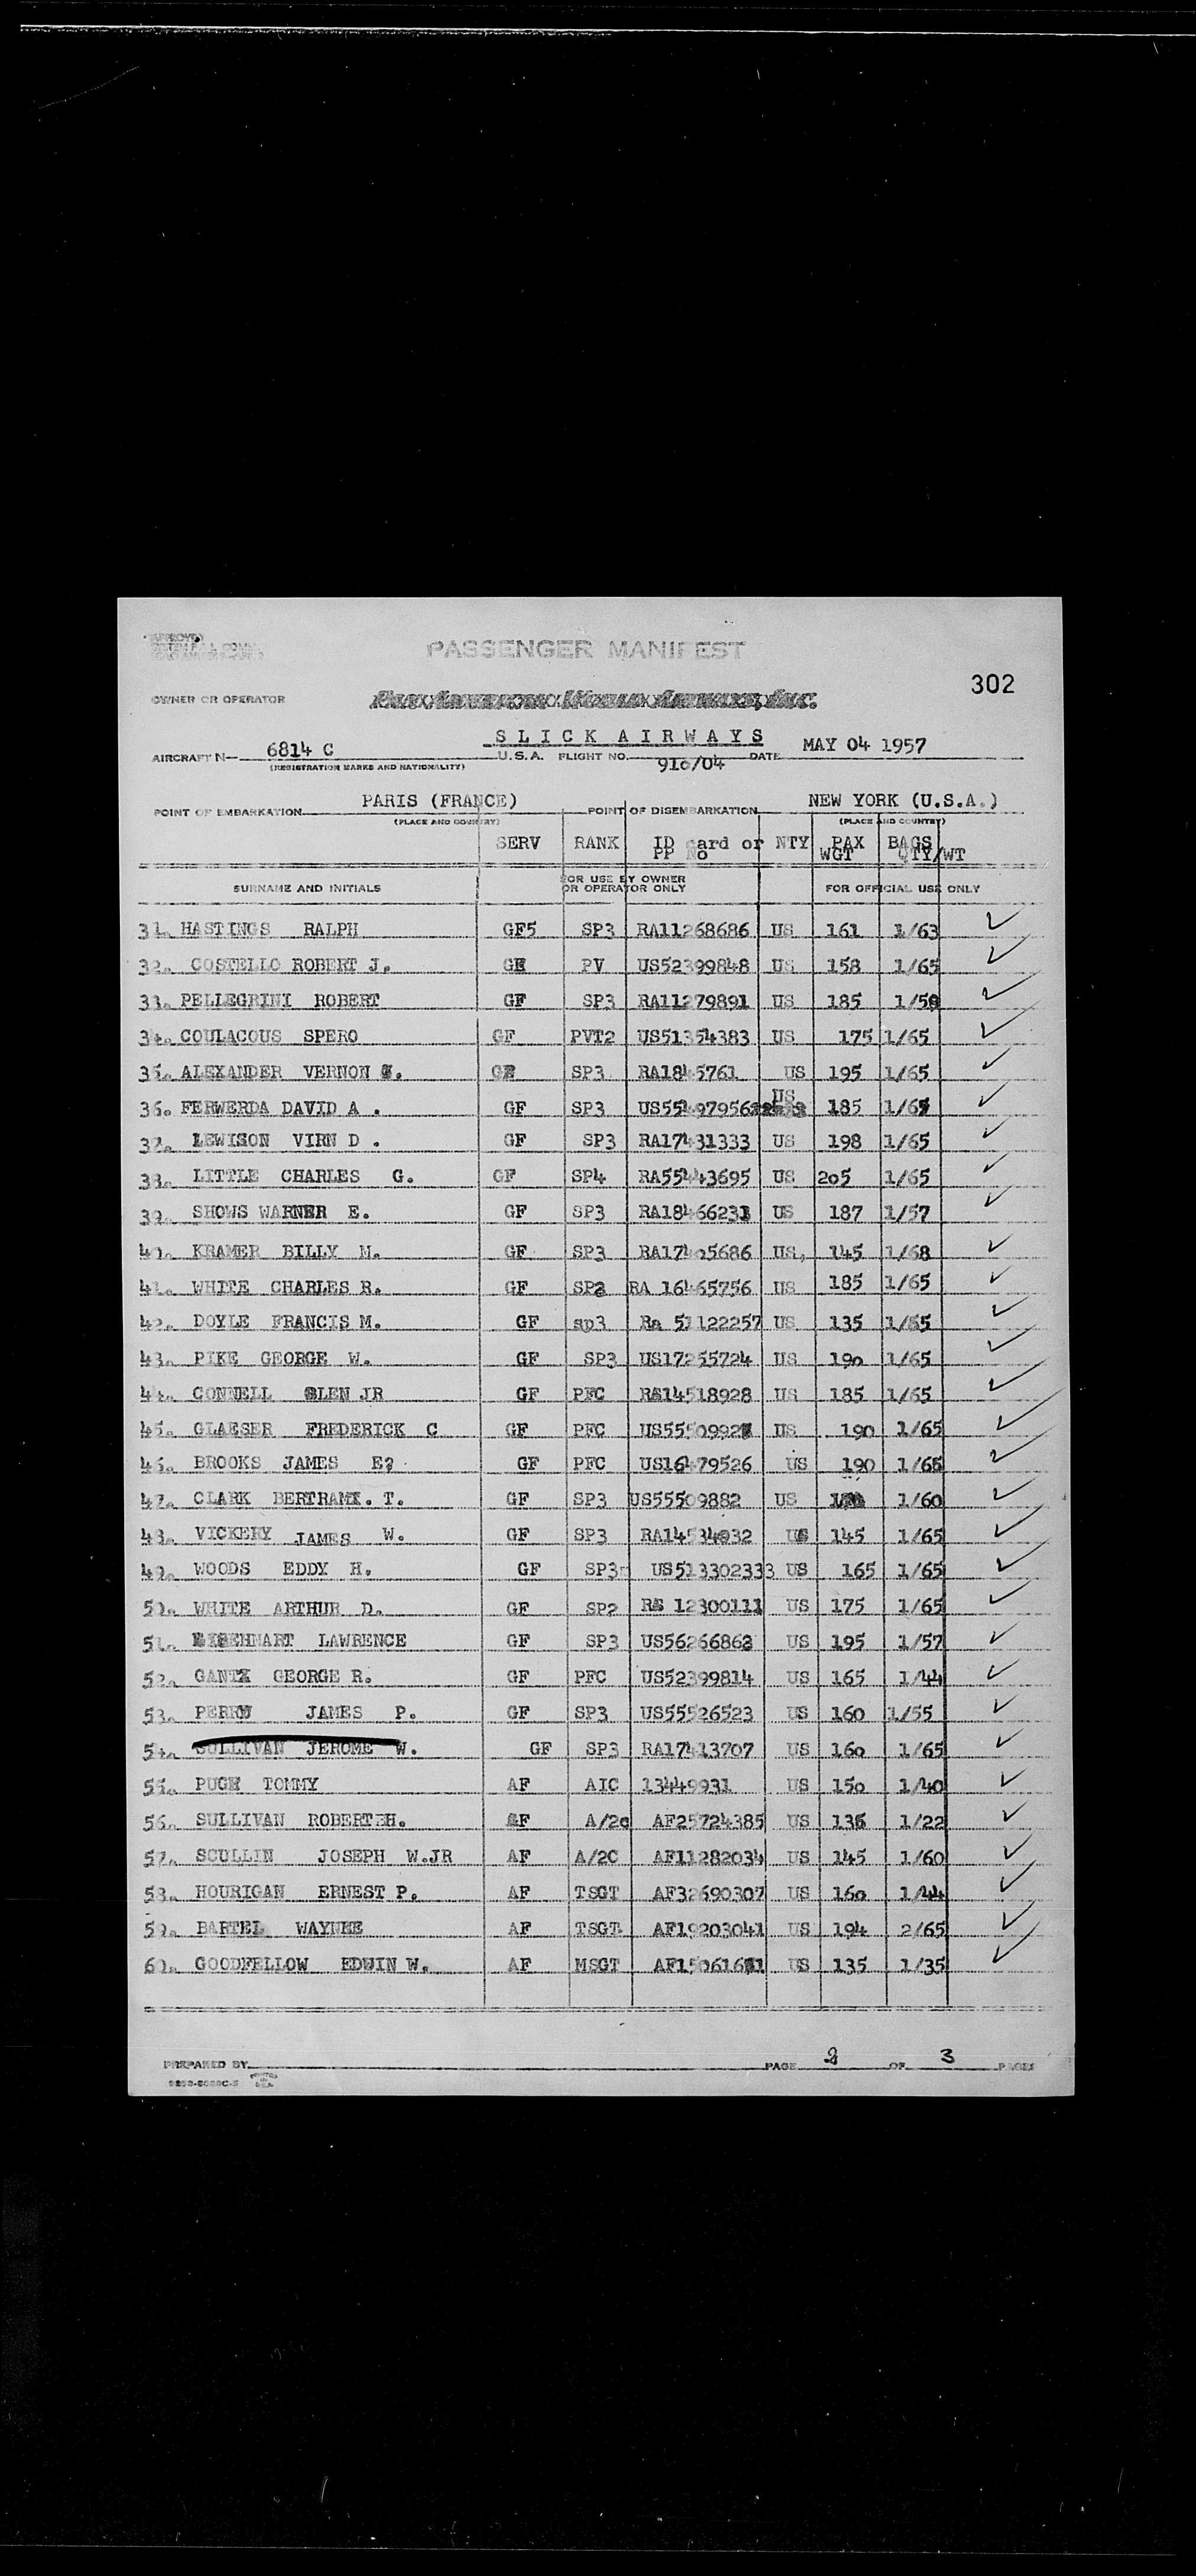 APPROVED
PASSENGER MANIFEST
302
OWNER OR OPERATOR
SLICK AIRWAYS
AIRCRAFT N— 6814 C U.S.A. FLIGHT NO. 910/04 DATE MAY 04 1957
(REGISTRATION MARKS AND NATIONALITY)
POINT OF EMBARKATION PARIS (FRANCE) POINT OF DISEMBARKATION NEW YORK (U.S.A.)
(PLACE AND COUNTRY) (PLACE AND COUNTRY)
SERV RANK ID card or NTY PAX BAGS
PP No WGT QTY/WT
SURNAME AND INITIALS FOR USE BY OWNER OR OPERATOR ONLY FOR OFFICIAL USE ONLY
31. HASTINGS RALPH GF5 SP3 RA11268686 US 161 1/63
32. COSTELLO ROBERT J. GF PV US52399848 US 158 1/65
33. PELLEGRINI ROBERT GF SP3 RA11279891 US 185
34. COULACOUS SPERO GF PVT2 US51354383 US 175 1/65
35. ALEXANDER VERNON GF SP3 RA1845761 US 195 1/65
36. FERWERDA DAVID A . GF SP3 US55497956 US 185 1/65
37. LEWISON VIRN D . GF SP3 RA17431333 US 198 1/65
38. LITTLE CHARLES G. GF SP4 RA55443695 US 205 1/65
39. SHOWS WARNER E. GF SP3 RA18466231 US 187 1/57
40. KRAMER BILLY M. GF SP3 RA17405686 US, 145 1/68
41. WHITE CHARLES R. GF SP2 RA 16465756 US 185 1/65
42. DOYLE FRANCIS M. GF sp3 Ra 51122257 US 135 1/65
43. PIKE GEORGE W. GF SP3 US17255724 US 190 1/65
44. CONNELL GLEN JR GF PFC RA14518928 US 185 1/65
45. GLAESER FREDERICK C GF PFC US55509927 US 190 1/65
46. BROOKS JAMES E? GF PFC US16479526 US 190 1/65
47. CLARK BERTRAM. T. GF SP3 US55509882 US 1/60
48. VICKERY JAMES W. GF SP3 RA14534032 US 145 1/65
49. WOODS EDDY H. GF SP3 US513302333 US 165 1/65
50. WHITE ARTHUR D. GF SP2 RA 12300111 US 175 1/65
51. LAWRENCE GF SP3 US56266862 US 195 1/57
52. GANTX GEORGE R. GF PFC US52399814 US 165 1/44
53. PERRY JAMES P. GF SP3 US55526523 US 160 1/55
54. SULLIVAN JEROME W. GF SP3 RA17413707 US 160 1/65
55. PUGH TOMMY AF AIC 13449931 US 150 1/40
56. SULLIVAN ROBERT H. AF A/2c AF25724385 US 135 1/22
57. SCULLIN JOSEPH W.JR AF A/2C AF11282034 US 145 1/60
58. HOURIGAN ERNEST P. AF TSGT AF32690307 US 160 1/44
59. BARTEL WAYNEE AF TSGT AF19203041 US 194 2/65
60. GOODFELLOW EDWIN W. AF MSGT US 135 1/35
PREPARED BY PAGE 2 OF 3 PAGES